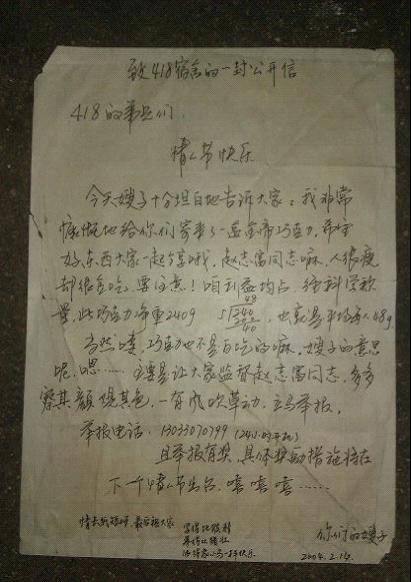 致418宿舍的一封公开信
418的弟兄们:
情人节快乐
今天嫂子十分坦白地告诉大家:我非常
慷慨地给你们寄来了一盒金币巧克力,希望
好东西大家一起享哦,赵志富同志嘛,人很瘦
却很贪吃,要注意!咱利益均占,经科学称
量,此巧克力净重240g 5√240 48 40 也就是平均每人48g
当然喽,巧克力也不是白吃的嘛,嫂子的意思
呢,嗯……主要是让大家监督赵志富同志,多多
察其颜观其色,一有风吹草动,立马举报,
举报电话:13033070799(24小时开机)
且举报有奖,具体奖励措施将在
下一个情人节出台,嘻嘻嘻……
最后祝大家
你们的嫂子
2004.2.14.